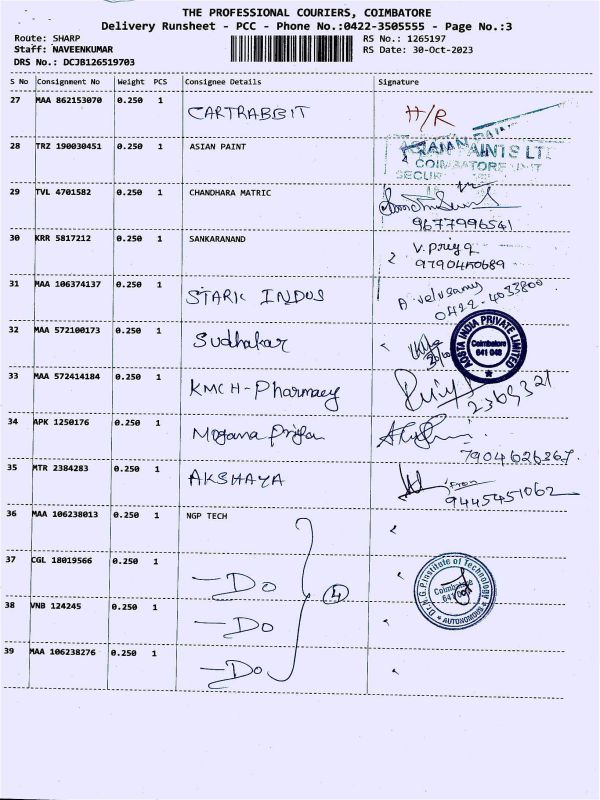 THE PROFESSIONAL COURIERS, COIMBATORE
Delivery Runsheet - PCC - Phone No.:0422-3505555 - Page No.:3
Route: SHARP RS No.: 1265197
Staff: NAVEENKUMAR RS Date: 30-Oct-2023
DRS No.: DCJB126519703
S No Consignment No Weight PCS Consignee Details Signature
27 MAA 862153070 0.250 1 CARTRABBIT H/R
28 TRZ 190030451 0.250 1 ASIAN PAINT
ASIAN PAINTS LTD
COIMBATORE UNIT
SECUR
29 TVL 4701582 0.250 1 CHANDHARA MATRIC
9677996541
30 KRR 5817212 0.250 1 SANKARANAND V. Priya
9790450689
31 MAA 106374137 0.250 1 STARK INDUS A Velusamy
0422-4033800
32 MAA 572100173 0.250 1 Sudhakar
AOSTA INDIA PRIVATE LIMITED
Coimbatore
641 048
33 MAA 572414184 0.250 1 KMCH-Pharmacy
2369321
34 APK 1250176 0.250 1 Mogana Priya
7904626267
35 MTR 2384283 0.250 1 AKSHAYA
9445451062
36 MAA 106238013 0.250 1 NGP TECH
37 CGL 18019566 0.250 1 -Do
4
Dr. N.G.P. Institute of Technology
Coimbatore
641 048
AUTONOMOUS
38 VNB 124245 0.250 1 -Do
39 MAA 106238276 0.250 1 -Do